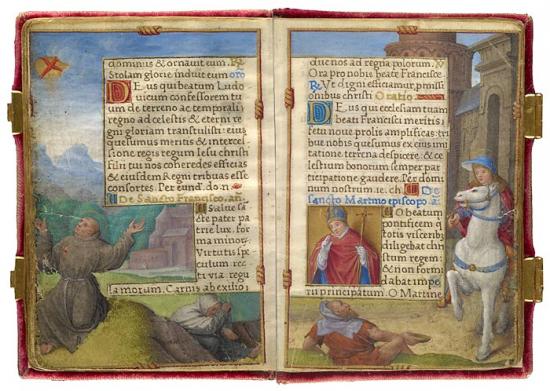 dominus & ornavit eum. R
Stolam glorie induit eum oro
DEus qui beatum Ludo
vicum confessorem tuum
de terreno ac temporali
regno ad celestis & eterni re
gni gloriam transtulisti: eius
quesumus meritis & interces
sione regis regum Iesu christi
filii tui nos coheredes efficias
& eiusdem Regni tribuas esse
consortes. Per eund. do. n
De Sancto Francisco, an.
Salve sa
cte pater pa
trie lux, for
ma minor.
Virtutis spe
culum rec
ti via regu
la morum. Carnis ab exilio
duc nos ad regna polorum. V
Ora pro nobis beate Francisce.
R Ut digni efficiamur, pmissi
onibus christi Oratio.
DEus qui ecclesiam tuam
beati Francisci meritis i
fetu nove prolis amplificas: tri
bue nobis quesumus ex eius imi
tatione terrena despicere, & ce
lestium bonorum semper par
ticipatione gaudere. Per domi
num nostrum. te. ch. De
sancto Martino episcopo a.
O beatum
pontificem q
totis visceribꝰ
diligebat chri
stum regem
& non formi
dabat impe
rii principatum. O Martine